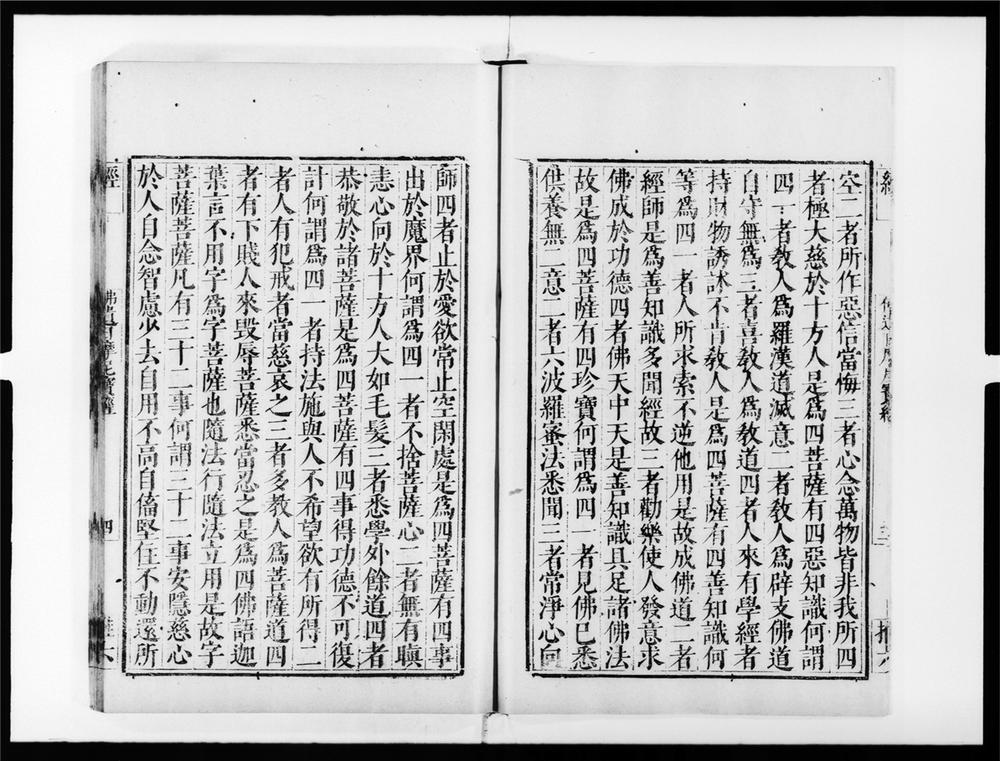 空二者所作惡信當悔三者心念萬物皆非我所四
者極大慈於十方人是爲四菩薩有四惡知識何謂
四一者敎人爲羅漢道滅意二者敎人爲辟支佛道
自守無爲三者喜敎人爲敎道四者人來有學經者
持財物誘訹不肯敎人是爲四菩薩有四善知識何
等爲四一者人所求索不逆他用是故成佛道二者
經師是爲善知識多聞經故三者勸樂使人發意求
佛成於功德四者佛天中天是善知識具足諸佛法
故是爲四菩薩有四珍寶何謂爲四一者見佛已悉
供養無二意二者六波羅蜜法悉聞三者常淨心向
師四者止於愛欲常止空閑處是爲四菩薩有四事
出於魔界何謂爲四一者不捨菩薩心二者無有瞋
恚心向於十方人大如毛髮三者悉學外餘道四者
恭敬於諸菩薩是爲四菩薩有四事得功德不可復
計何謂爲四一者持法施與人不希望欲有所得二
者人有犯戒者當慈哀之三者多敎人爲菩薩道四
者有下賤人來毀辱菩薩悉當忍之是爲四佛語迦
葉言不用字爲字菩薩也隨法行隨法立用是故字
菩薩菩薩凡有三十二事何謂三十二事安隱慈心
於人自念智慮少去自用不高自憍堅住不動還所
經
四